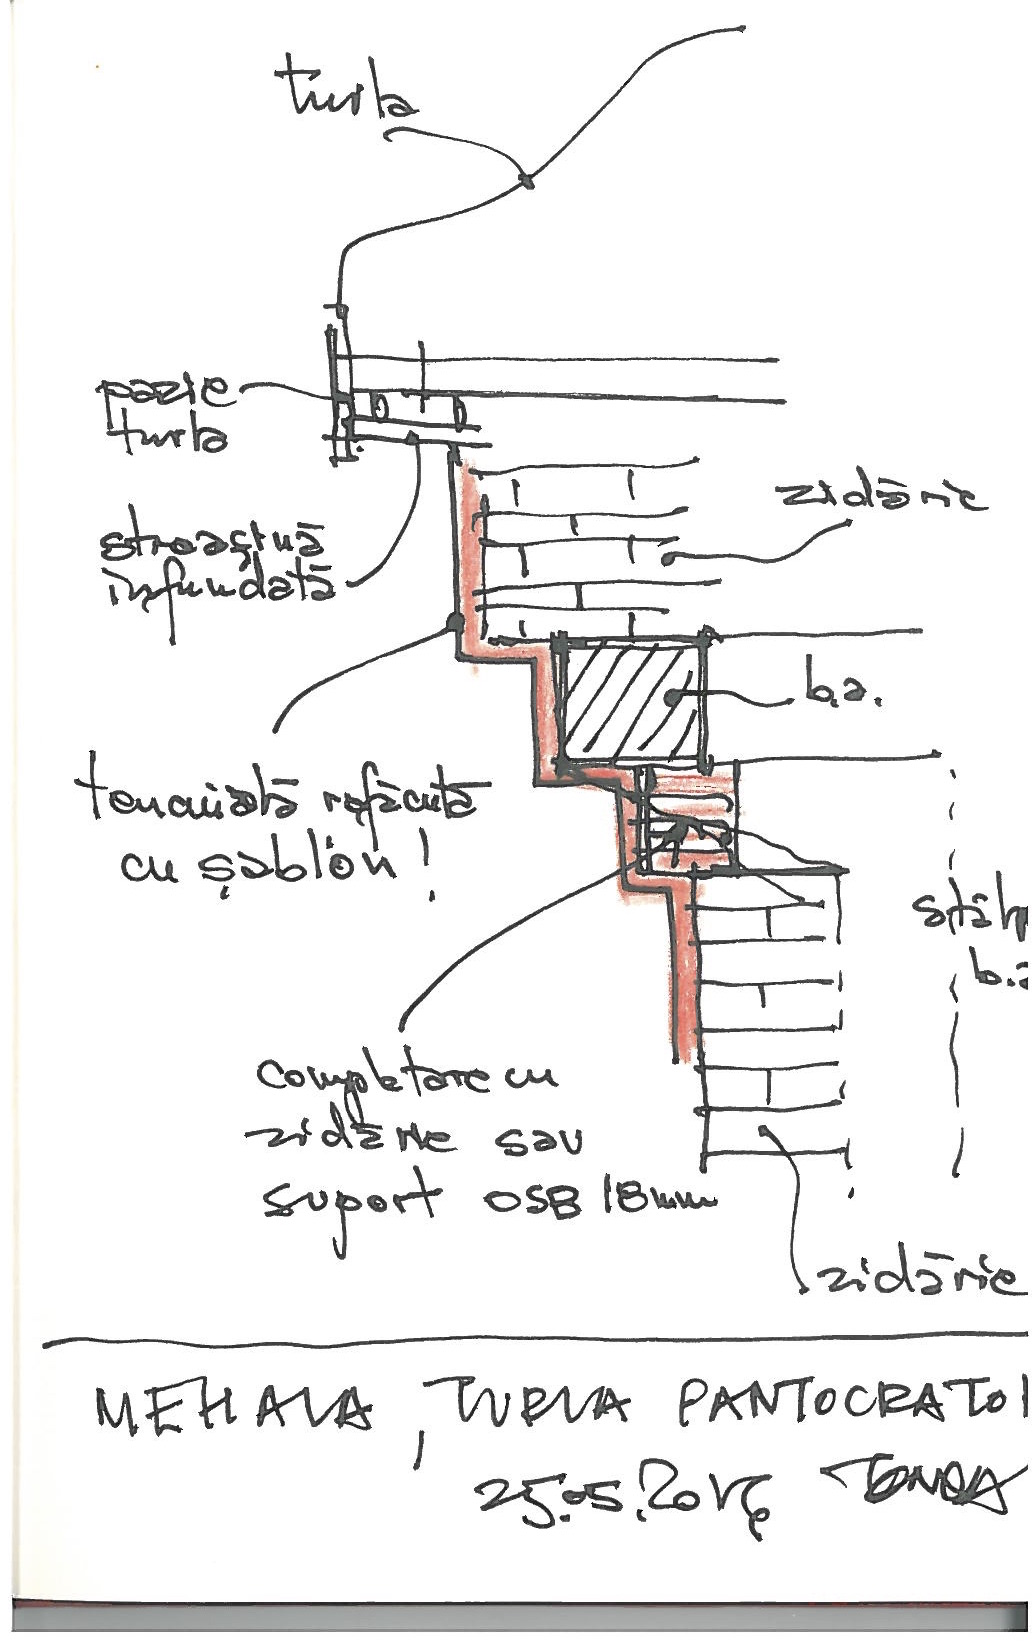 turla
pazie
turla
zidărie
streașină
înfundată
b.a.
tencuială refăcută
cu șablon!
stâlp
b.a
completare cu
zidărie sau
suport OSB 18mm
zidărie
MEHALA, TURLA PANTOCRATO
25.05.2016